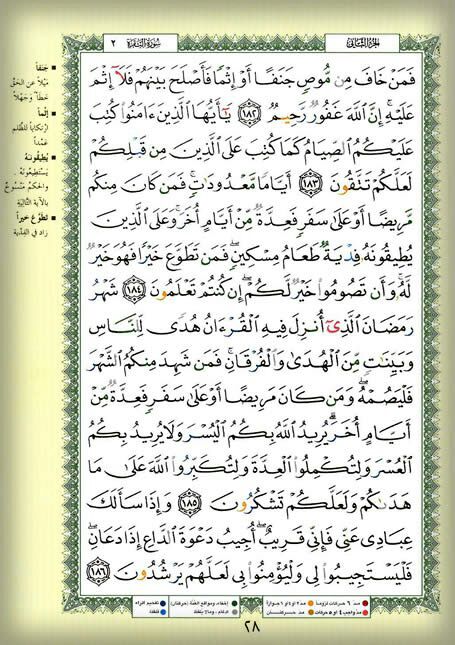 الجزء الثاني
سورة البقرة ٢
فَمَنْ خَافَ مِن مُّوصٍ جَنَفًا أَوْ إِثْمًا فَأَصْلَحَ بَيْنَهُمْ فَلَآ إِثْمَ
عَلَيْهِ ۚ إِنَّ ٱللَّهَ غَفُورٌ رَّحِيمٌ ١٨٢ يَـٰٓأَيُّهَا ٱلَّذِينَ ءَامَنُوا۟ كُتِبَ
عَلَيْكُمُ ٱلصِّيَامُ كَمَا كُتِبَ عَلَى ٱلَّذِينَ مِن قَبْلِكُمْ
لَعَلَّكُمْ تَتَّقُونَ ١٨٣ أَيَّامًا مَّعْدُودَٰتٍ ۚ فَمَن كَانَ مِنكُم
مَّرِيضًا أَوْ عَلَىٰ سَفَرٍ فَعِدَّةٌ مِّنْ أَيَّامٍ أُخَرَ ۚ وَعَلَى ٱلَّذِينَ
يُطِيقُونَهُۥ فِدْيَةٌ طَعَامُ مِسْكِينٍ ۖ فَمَن تَطَوَّعَ خَيْرًا فَهُوَ خَيْرٌ
لَّهُۥ ۚ وَأَن تَصُومُوا۟ خَيْرٌ لَّكُمْ ۖ إِن كُنتُمْ تَعْلَمُونَ ١٨٤ شَهْرُ
رَمَضَانَ ٱلَّذِىٓ أُنزِلَ فِيهِ ٱلْقُرْءَانُ هُدًى لِّلنَّاسِ
وَبَيِّنَـٰتٍ مِّنَ ٱلْهُدَىٰ وَٱلْفُرْقَانِ ۚ فَمَن شَهِدَ مِنكُمُ ٱلشَّهْرَ
فَلْيَصُمْهُ ۖ وَمَن كَانَ مَرِيضًا أَوْ عَلَىٰ سَفَرٍ فَعِدَّةٌ مِّنْ
أَيَّامٍ أُخَرَ ۗ يُرِيدُ ٱللَّهُ بِكُمُ ٱلْيُسْرَ وَلَا يُرِيدُ بِكُمُ
ٱلْعُسْرَ وَلِتُكْمِلُوا۟ ٱلْعِدَّةَ وَلِتُكَبِّرُوا۟ ٱللَّهَ عَلَىٰ مَا
هَدَىٰكُمْ وَلَعَلَّكُمْ تَشْكُرُونَ ١٨٥ وَإِذَا سَأَلَكَ
عِبَادِى عَنِّى فَإِنِّى قَرِيبٌ ۖ أُجِيبُ دَعْوَةَ ٱلدَّاعِ إِذَا دَعَانِ ۖ
فَلْيَسْتَجِيبُوا۟ لِى وَلْيُؤْمِنُوا۟ بِى لَعَلَّهُمْ يَرْشُدُونَ ١٨٦
جنفاً
ميلاً عن الحق
خطأ وجهلاً
إثماً
ارتكاباً للظلم
عمداً
يطيقونه
يستطيعونه
والحكم منسوخ
بالآية التالية
تطوع خيراً
زاد في الفدية
مد ٦ حركات لزوماً
مد ٢ أو ٤ أو ٦ جوازاً
إخفاء، ومواقع الغنة (حركتان)
تفخيم الراء
مد واجب ٤ أو ٥ حركات
مد حركتان
إدغام، وما لا يلفظ
قلقلة
٢٨